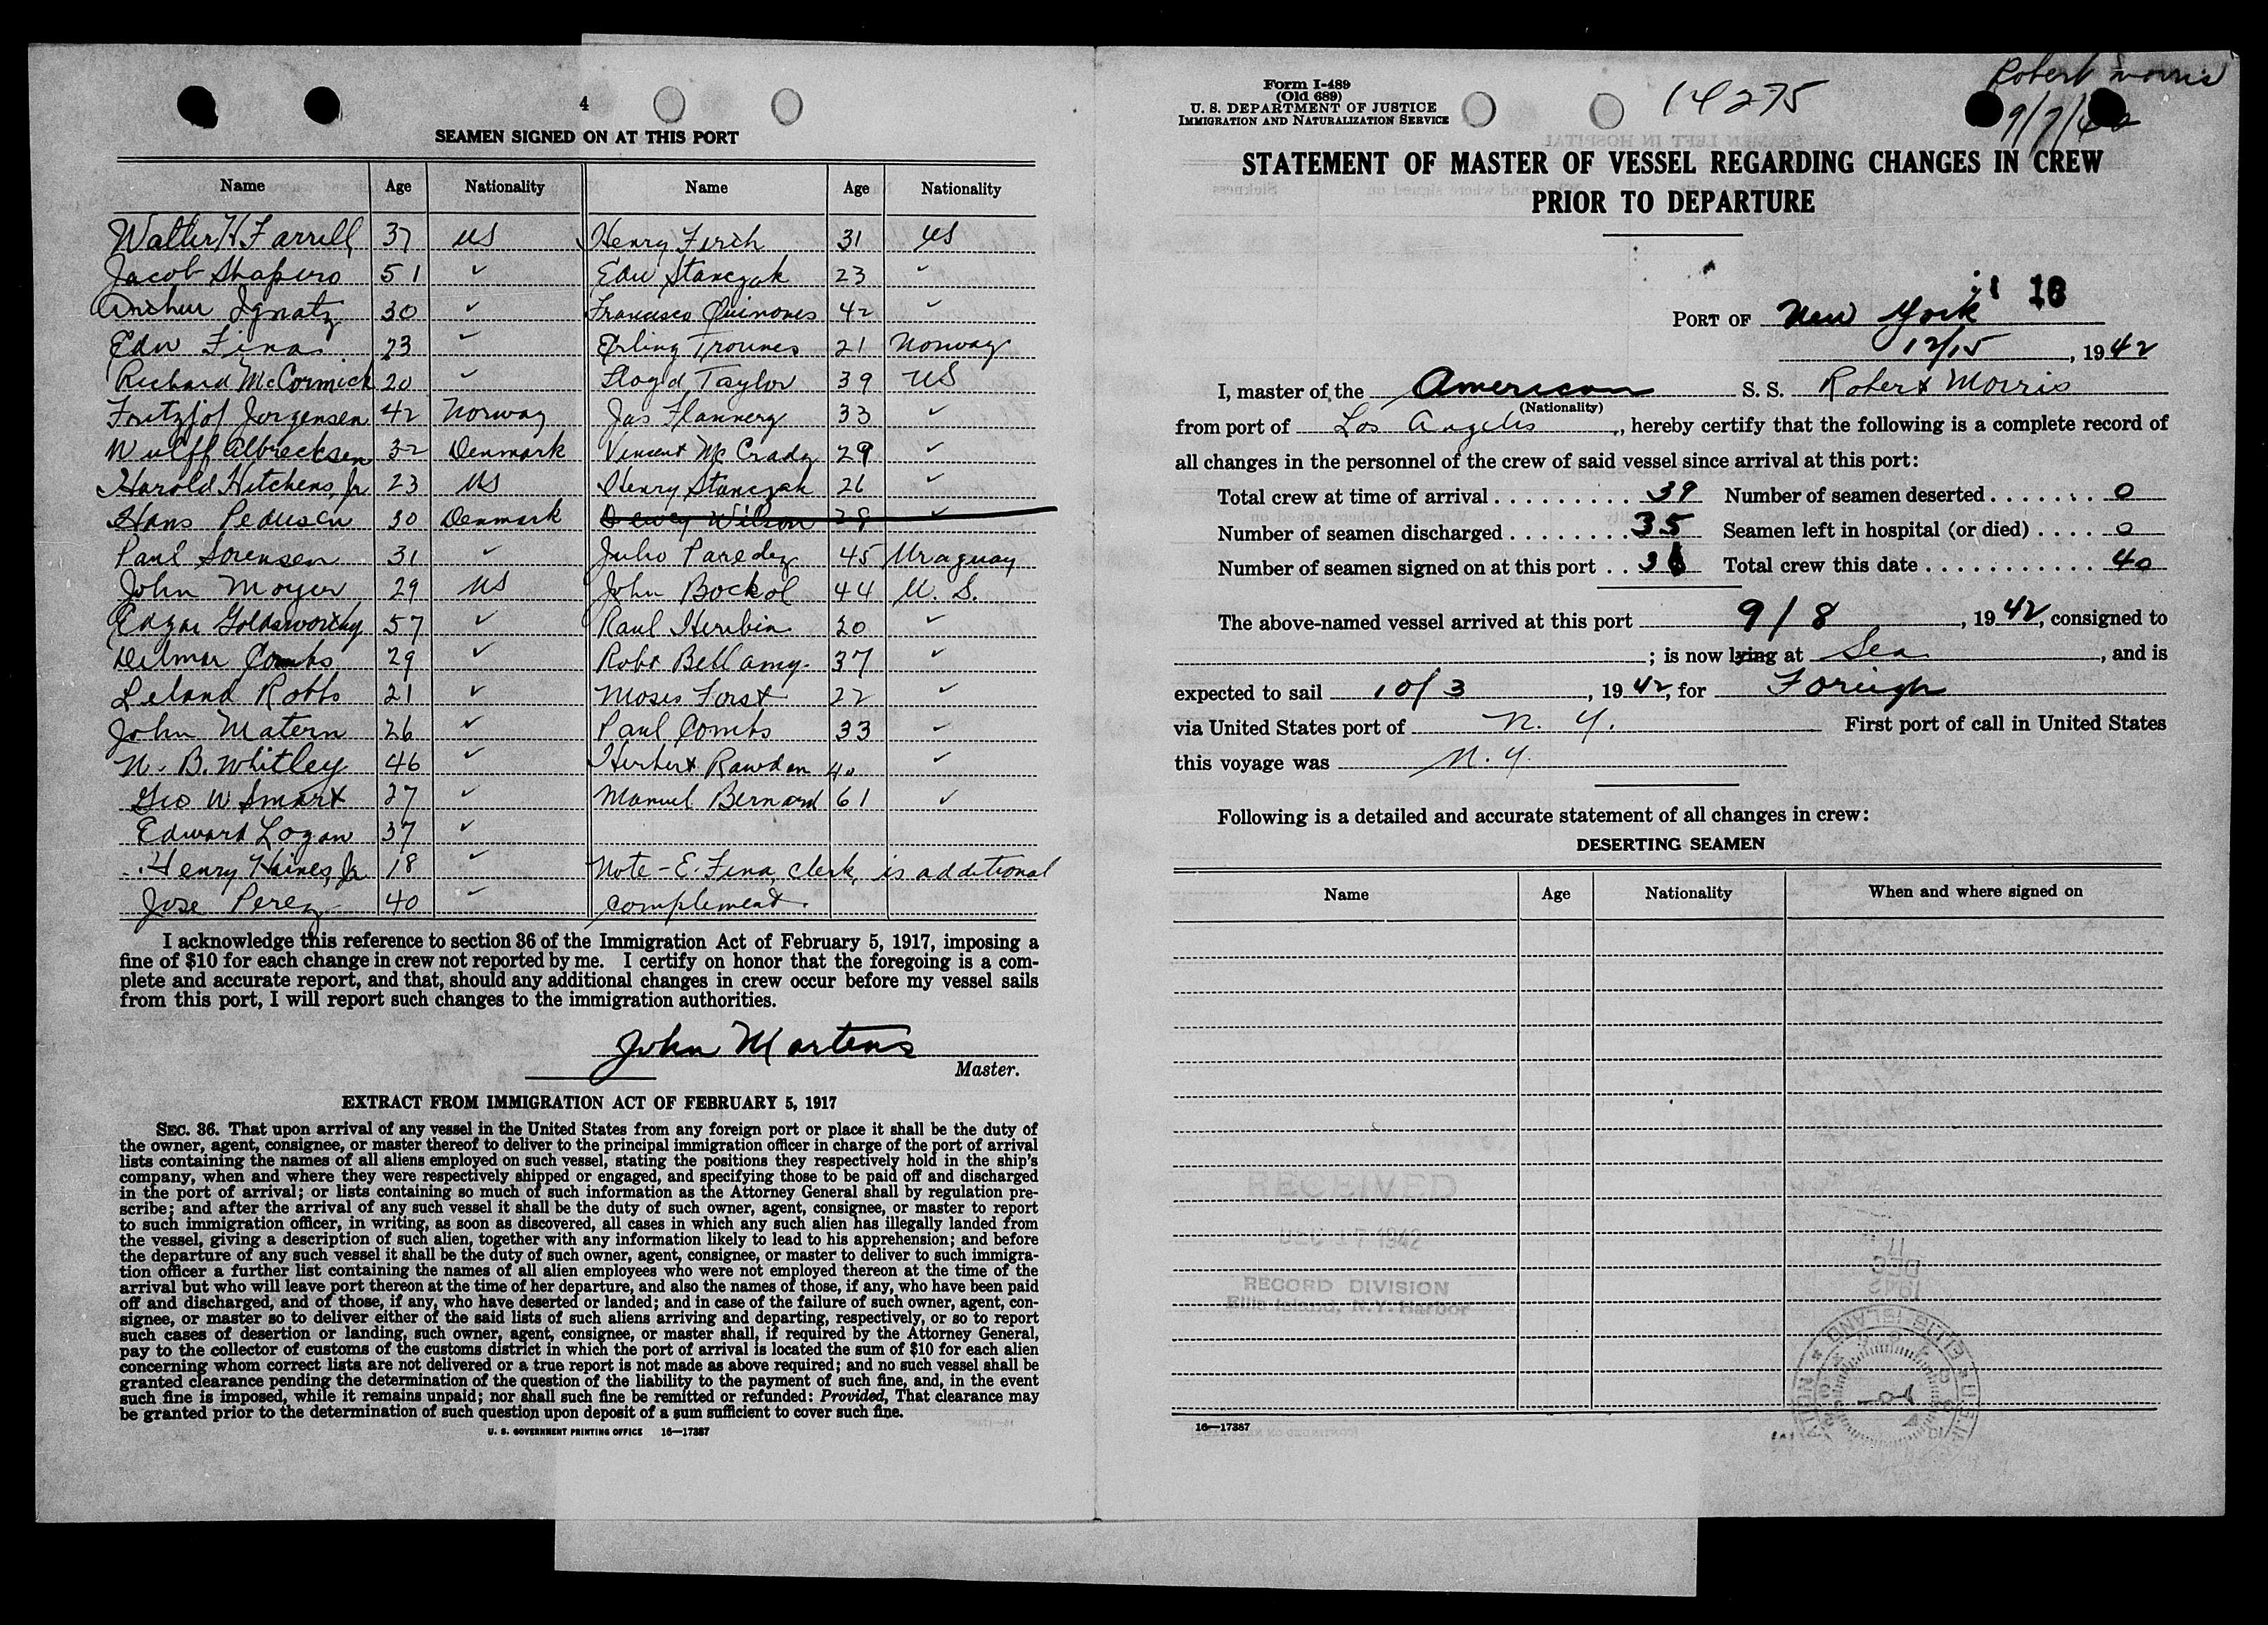 4
SEAMEN SIGNED ON AT THIS PORT
Name Age Nationality Name Age Nationality
Walter H Farrell 37 US Henry Ferch 31 US
Jacob Shapiro 51 ✓ Edw Stanczak 23 ✓
Arthur Ignatz 30 ✓ Francisco Quinones 42 ✓
Edw Fina 23 ✓ Erling Trounes 21 Norway
Richard McCormick 20 ✓ Lloyd Taylor 39 US
Fritzjof Jorgensen 42 Norway Jas Flannery 33 ✓
Wulff Albrecksen 32 Denmark Vincent McCrada 29 ✓
Harold Hitchens, Jr 23 US Henry Stanczak 26 ✓
Hans Pedersen 30 Denmark Dewey Wilson 28 ✓
Paul Sorensen 31 ✓ Julio Paredez 45 Uraguay
John Moyer 29 US John Bockol 44 U. S.
Edgar Goldsworthy 57 ✓ Raul Heribia 20 ✓
Delmar Combs 29 ✓ Robt Bellamy 37 ✓
Leland Robbs 21 ✓ Moses Forst 22 ✓
John Matern 26 ✓ Paul Combs 33 ✓
W. B. Whitley 46 ✓ Herbert Rawden 40 ✓
Geo W Smart 27 ✓ Manuel Bernard 61 ✓
Edward Logan 37 ✓
Henry Haines, Jr 18 ✓ Note - E. Fina, clerk, is additional
Jose Perez 40 ✓ complement.
I acknowledge this reference to section 36 of the Immigration Act of February 5, 1917, imposing a
fine of $10 for each change in crew not reported by me. I certify on honor that the foregoing is a com-
plete and accurate report, and that, should any additional changes in crew occur before my vessel sails
from this port, I will report such changes to the immigration authorities.
John Martens
Master.
EXTRACT FROM IMMIGRATION ACT OF FEBRUARY 5, 1917
SEC. 36. That upon arrival of any vessel in the United States from any foreign port or place it shall be the duty of
the owner, agent, consignee, or master thereof to deliver to the principal immigration officer in charge of the port of arrival
lists containing the names of all aliens employed on such vessel, stating the positions they respectively hold in the ship's
company, when and where they were respectively shipped or engaged, and specifying those to be paid off and discharged
in the port of arrival; or lists containing so much of such information as the Attorney General shall by regulation pre-
scribe; and after the arrival of any such vessel it shall be the duty of such owner, agent, consignee, or master to report
to such immigration officer, in writing, as soon as discovered, all cases in which any such alien has illegally landed from
the vessel, giving a description of such alien, together with any information likely to lead to his apprehension; and before
the departure of any such vessel it shall be the duty of such owner, agent, consignee, or master to deliver to such immigra-
tion officer a further list containing the names of all alien employees who were not employed thereon at the time of the
arrival but who will leave port thereon at the time of her departure, and also the names of those, if any, who have been paid
off and discharged, and of those, if any, who have deserted or landed; and in case of the failure of such owner, agent, con-
signee, or master so to deliver either of the said lists of such aliens arriving and departing, respectively, or so to report
such cases of desertion or landing, such owner, agent, consignee, or master shall, if required by the Attorney General,
pay to the collector of customs of the customs district in which the port of arrival is located the sum of $10 for each alien
concerning whom correct lists are not delivered or a true report is not made as above required; and no such vessel shall be
granted clearance pending the determination of the question of the liability to the payment of such fine, and, in the event
such fine is imposed, while it remains unpaid; nor shall such fine be remitted or refunded: Provided, That clearance may
be granted prior to the determination of such question upon deposit of a sum sufficient to cover such fine.
U. S. GOVERNMENT PRINTING OFFICE 16—17387
Form I-489
(Old 689)
U. S. DEPARTMENT OF JUSTICE
IMMIGRATION AND NATURALIZATION SERVICE
14275
Robert Morris
9/7/42
STATEMENT OF MASTER OF VESSEL REGARDING CHANGES IN CREW
PRIOR TO DEPARTURE
16
PORT OF New York
12/15, 1942
I, master of the American S. S. Robert Morris
(Nationality)
from port of Los Angeles, hereby certify that the following is a complete record of
all changes in the personnel of the crew of said vessel since arrival at this port:
Total crew at time of arrival . . . . . . . . . 39 Number of seamen deserted . . . . . . . 0
Number of seamen discharged . . . . . . . . 35 Seamen left in hospital (or died) . . . . 0
Number of seamen signed on at this port . . 36 Total crew this date . . . . . . . . . . . 40
The above-named vessel arrived at this port 9/8, 1942, consigned to
; is now lying at Sea, and is
expected to sail 10/3, 1942, for Foreign
via United States port of N. Y. First port of call in United States
this voyage was N. Y.
Following is a detailed and accurate statement of all changes in crew:
DESERTING SEAMEN
Name Age Nationality When and where signed on
RECEIVED
DEC 17 1942
RECORD DIVISION
Ellis Island, N.Y. Harbor
16—17387